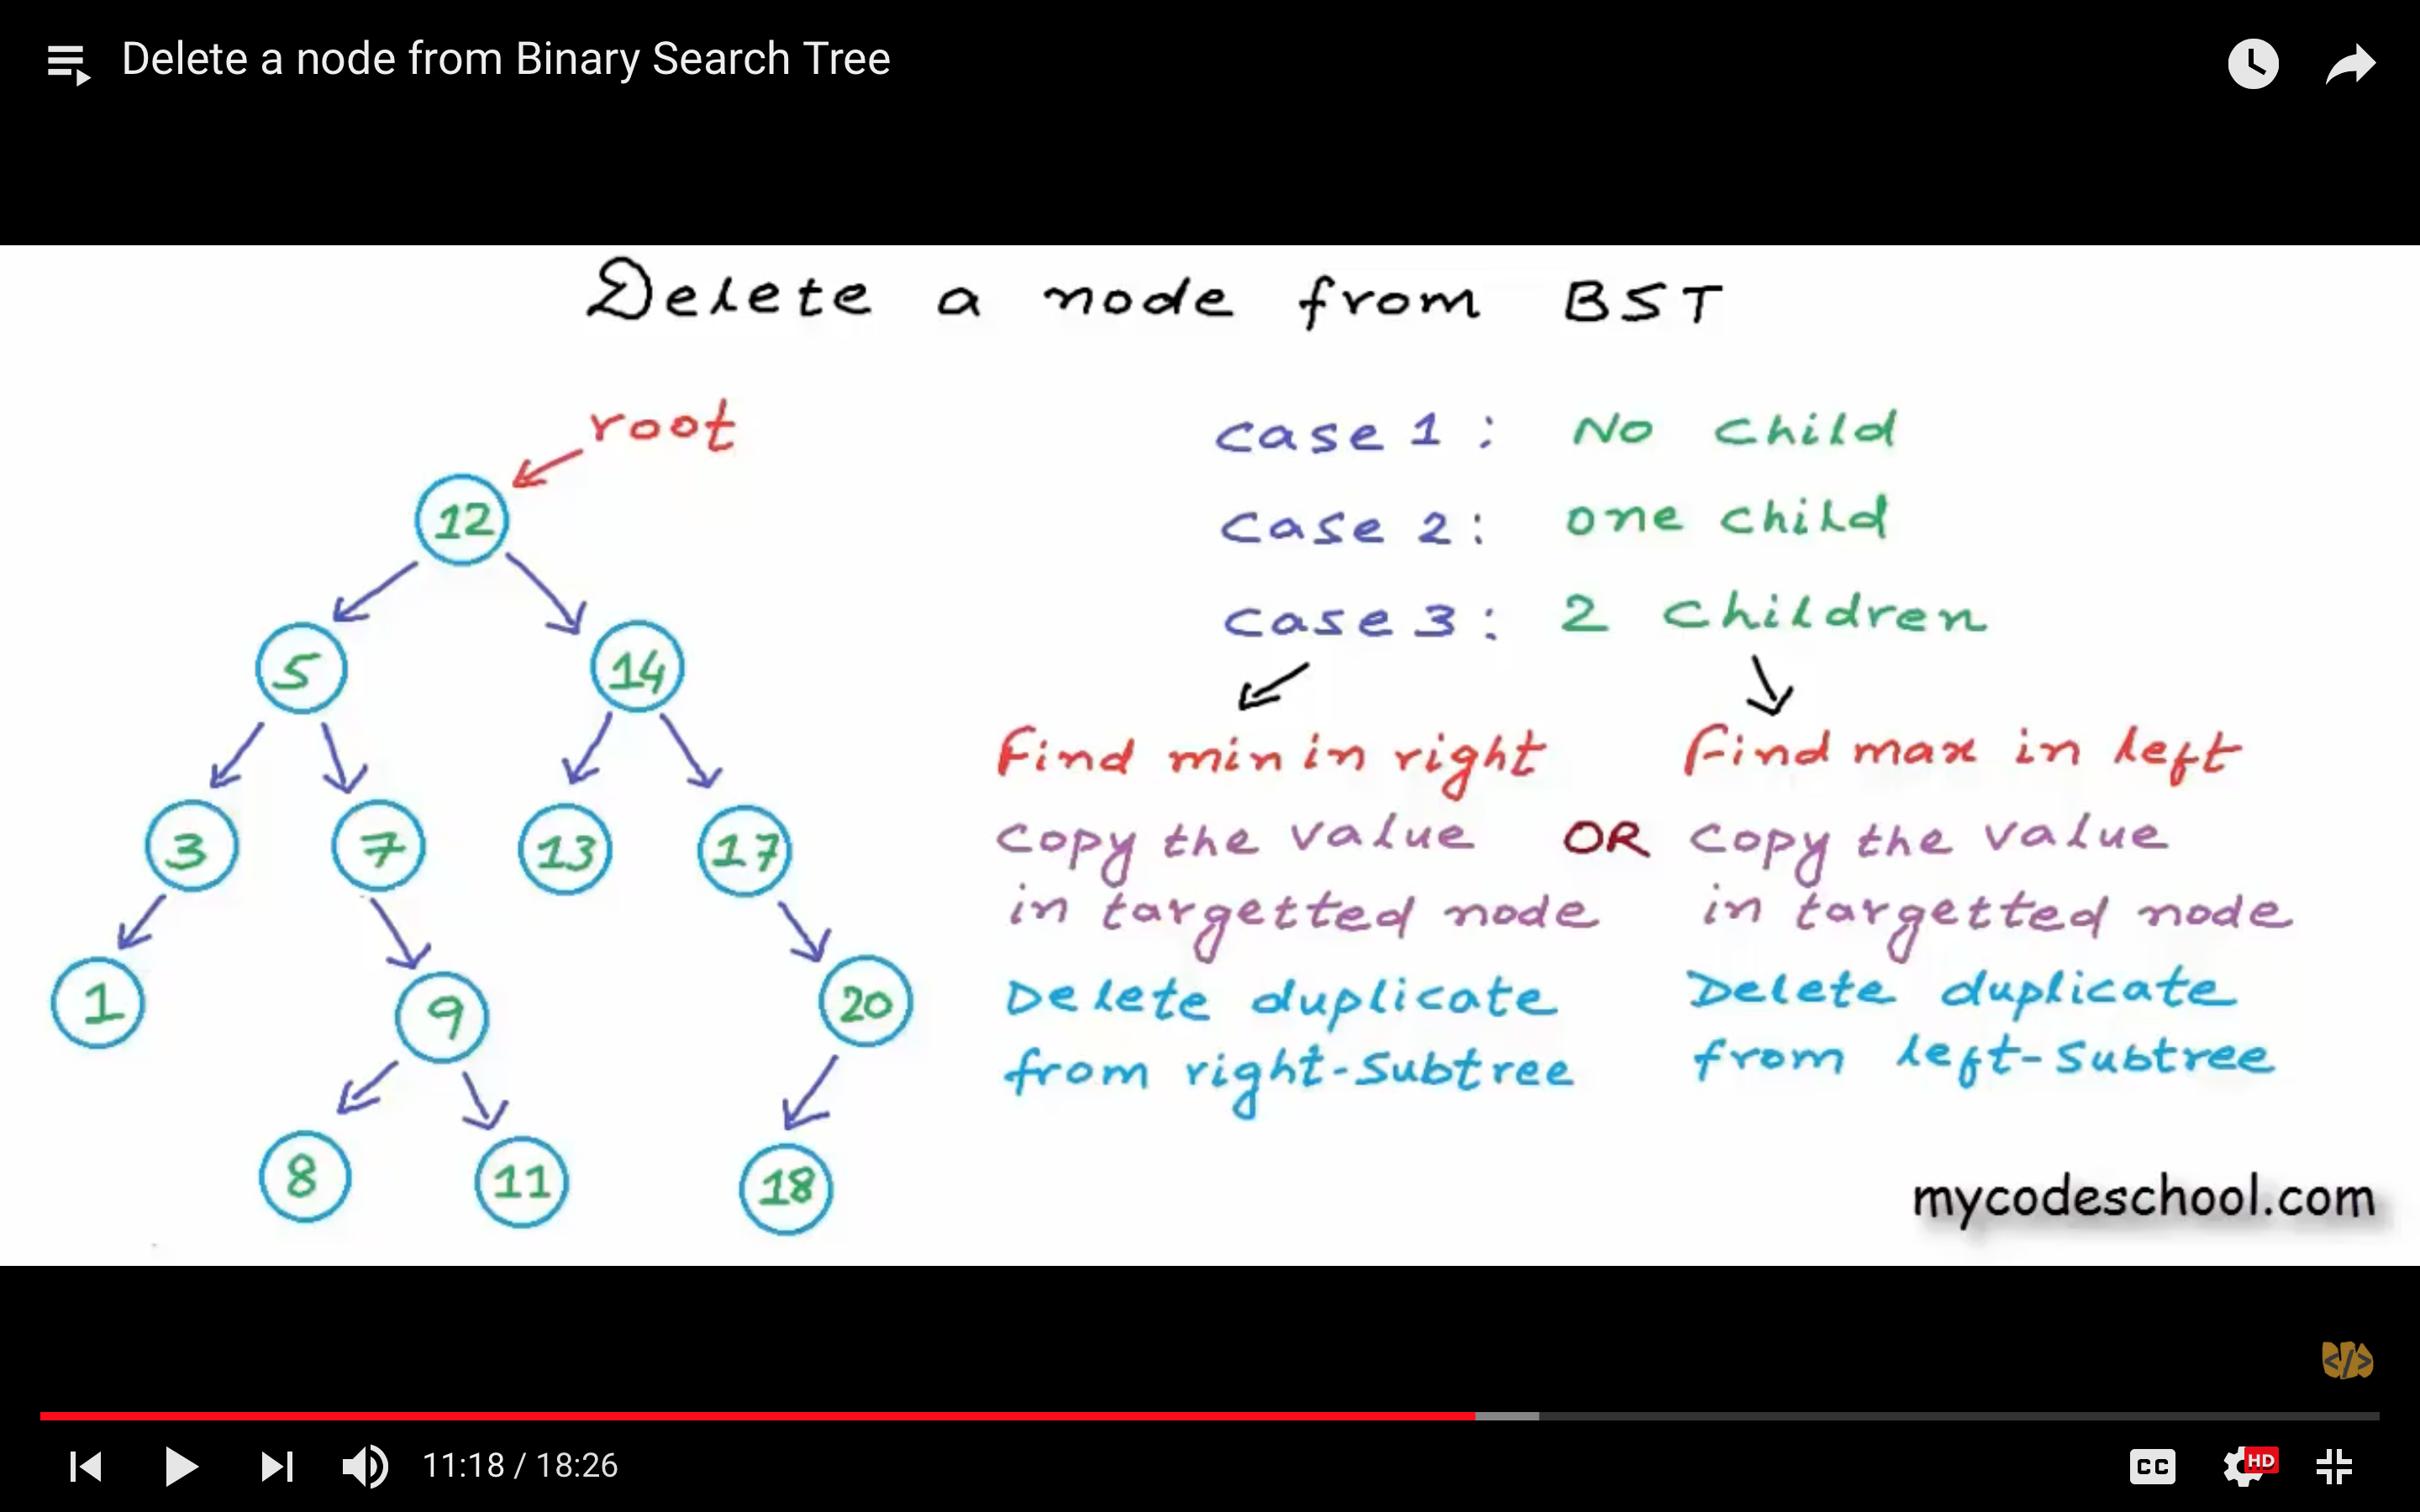 Delete a node from Binary Search Tree
Delete a node from BST
root
12
5
14
3
7
13
17
1
9
20
8
11
18
case 1 : No child
case 2 : one child
case 3 : 2 children
Find min in right
copy the value
in targetted node
Delete duplicate
from right-subtree
OR
Find max in left
copy the value
in targetted node
Delete duplicate
from left-subtree
mycodeschool.com
</>
11:18 / 18:26
CC
HD